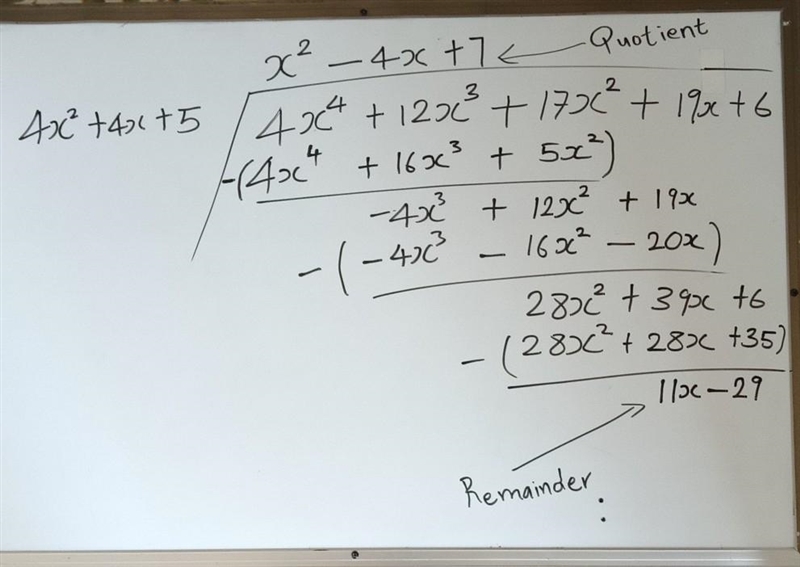 x² - 4x + 7 ← Quotient
4x² + 4x + 5 4x⁴ + 12x³ + 17x² + 19x + 6
-(4x⁴ + 16x³ + 5x²)
-4x³ + 12x² + 19x
-(-4x³ - 16x² - 20x)
28x² + 39x + 6
-(28x² + 28x + 35)
11x - 29
Remainder :